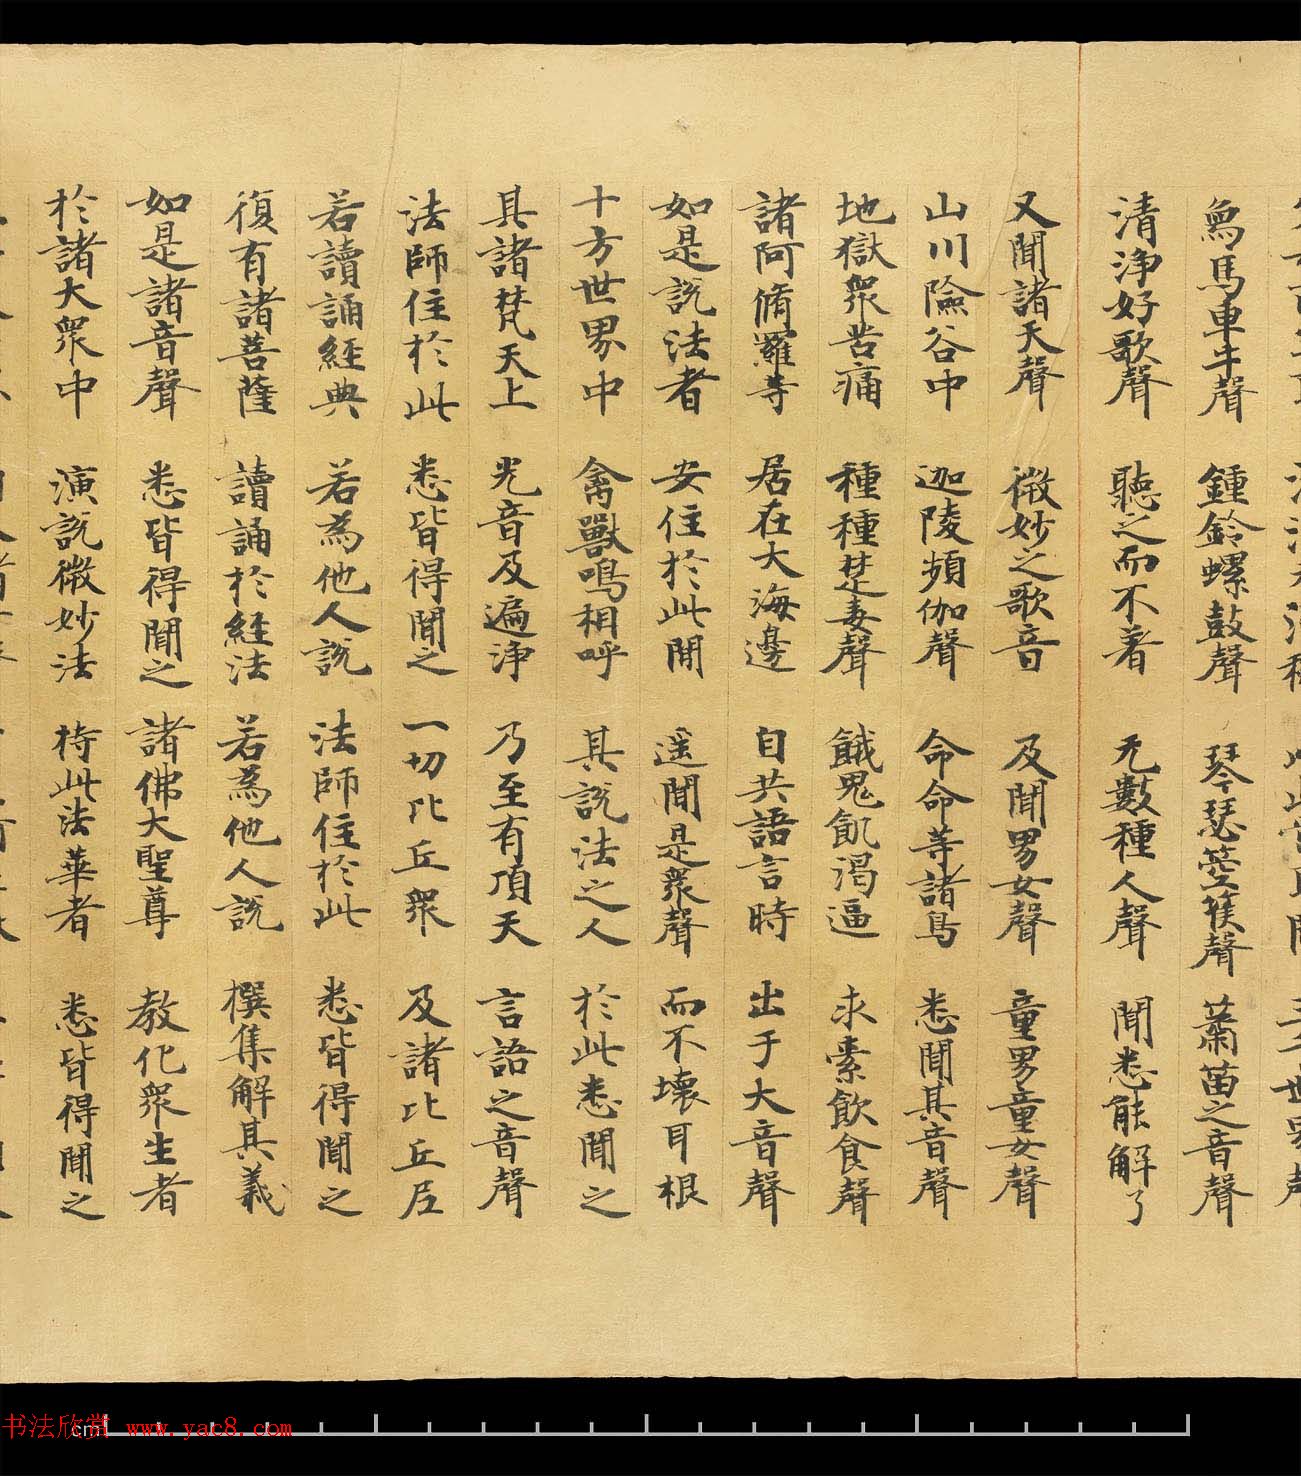 象馬車牛聲 鍾鈴螺鼓聲 琴瑟箜篌聲 蕭笛之音聲
清淨好歌聲 聽之而不著 无數種人聲 聞悉能解了
又聞諸天聲 微妙之歌音 及聞男女聲 童男童女聲
山川險谷中 迦陵頻伽聲 命命等諸鳥 悉聞其音聲
地獄眾苦痛 種種楚毒聲 餓鬼飢渴逼 求索飲食聲
諸阿脩羅等 居在大海邊 自共語言時 出于大音聲
如是說法者 安住於此間 遥聞是眾聲 而不壞耳根
十方世界中 禽獸鳴相呼 其說法之人 於此悉聞之
其諸梵天上 光音及遍淨 乃至有頂天 言語之音聲
法師住於此 悉皆得聞之 一切比丘眾 及諸比丘尼
若讀誦經典 若為他人說 法師住於此 悉皆得聞之
復有諸菩薩 讀誦於経法 若為他人說 撰集解其義
如是諸音聲 悉皆得聞之 諸佛大聖尊 教化眾生者
於諸大眾中 演說微妙法 持此法華者 悉皆得聞之
书法欣赏 www.yac8.com
cm